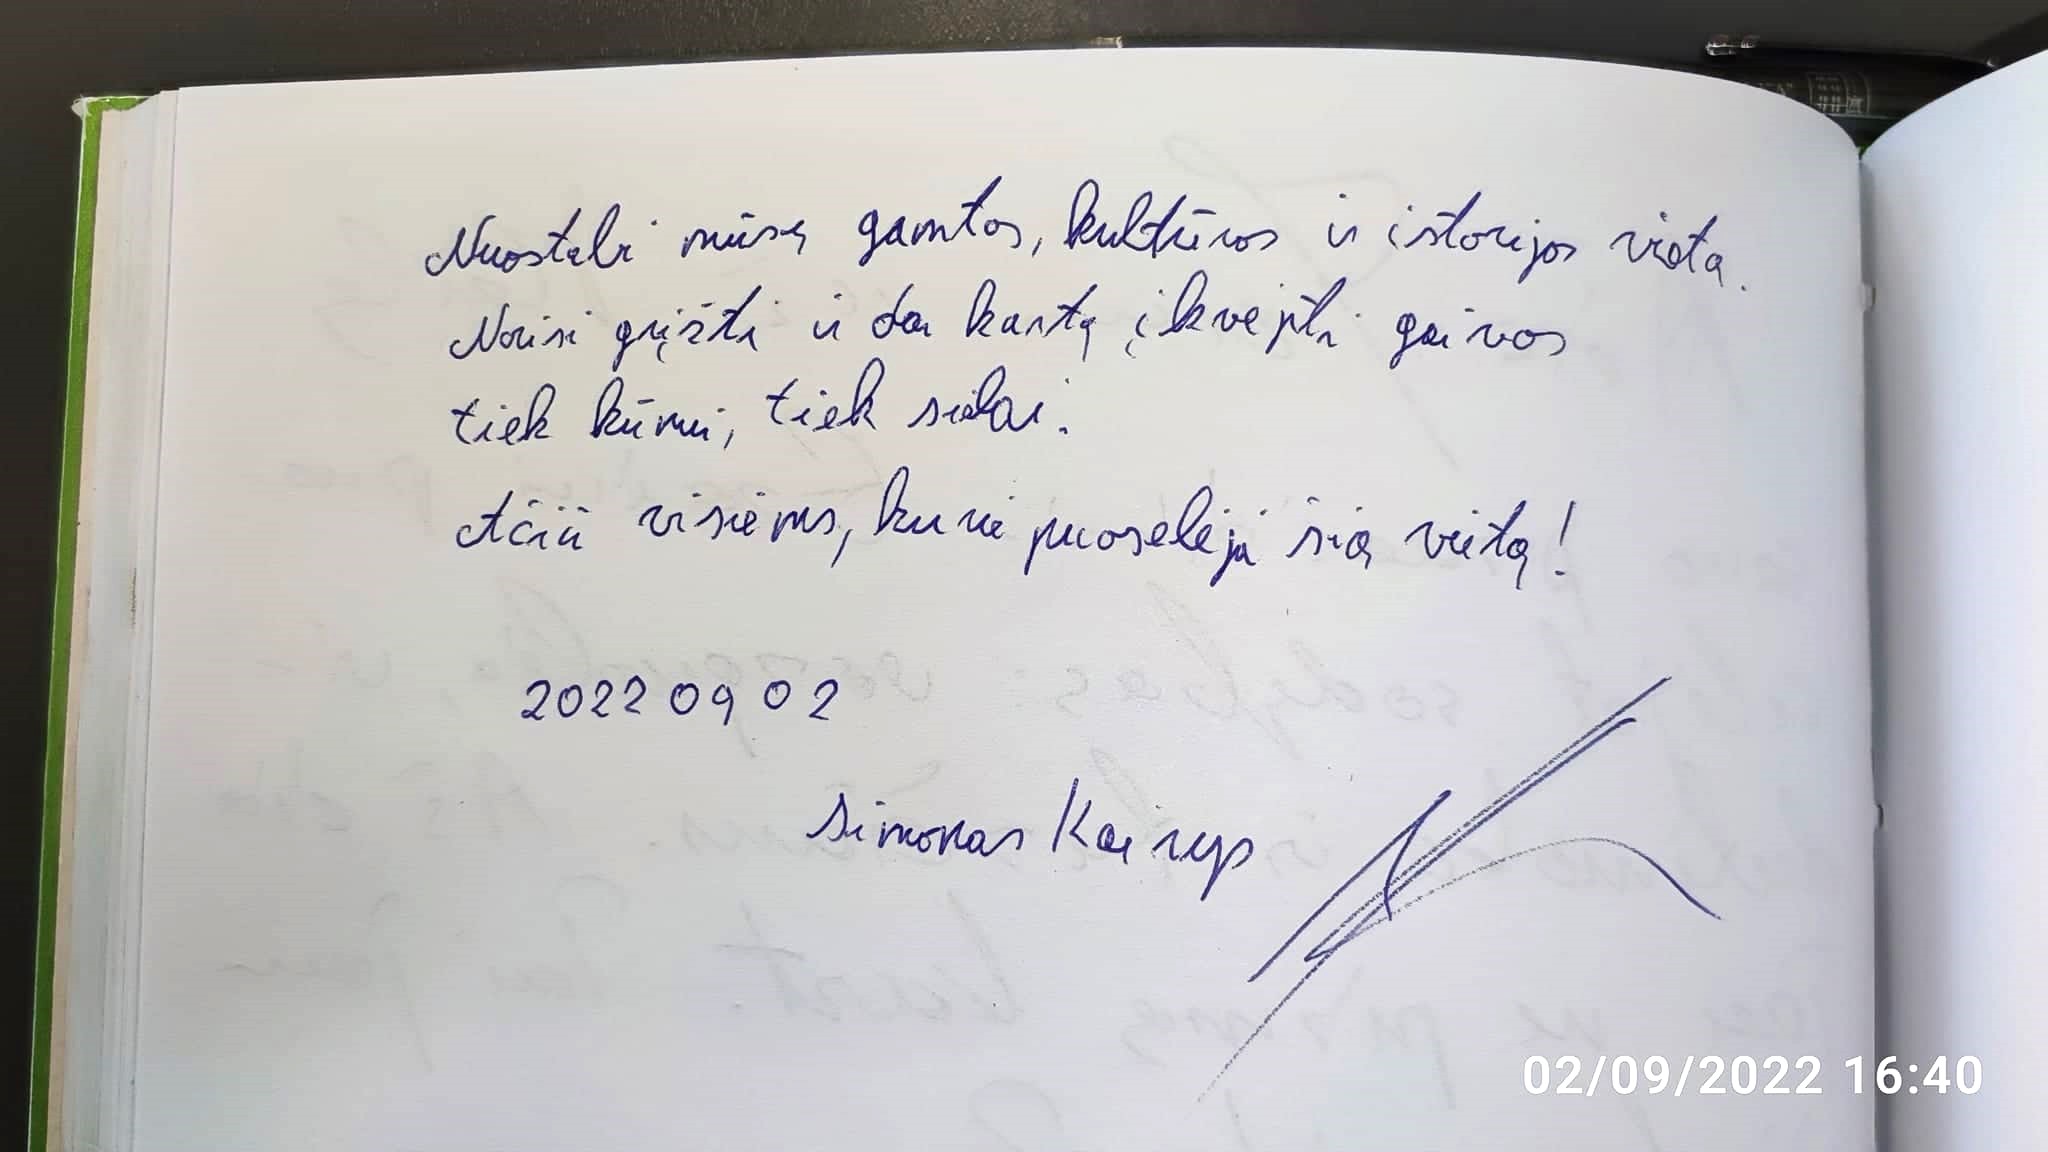 Nuostabi mūsų gamtos, kultūros ir istorijos vieta.
Norisi grįžti ir dar kartą įkvėpti gaivos
tiek kūnui, tiek sielai.
Ačiū visiems, kurie puoselėja šią vietą!
2022 09 02
Simonas Kairys
02/09/2022 16:40